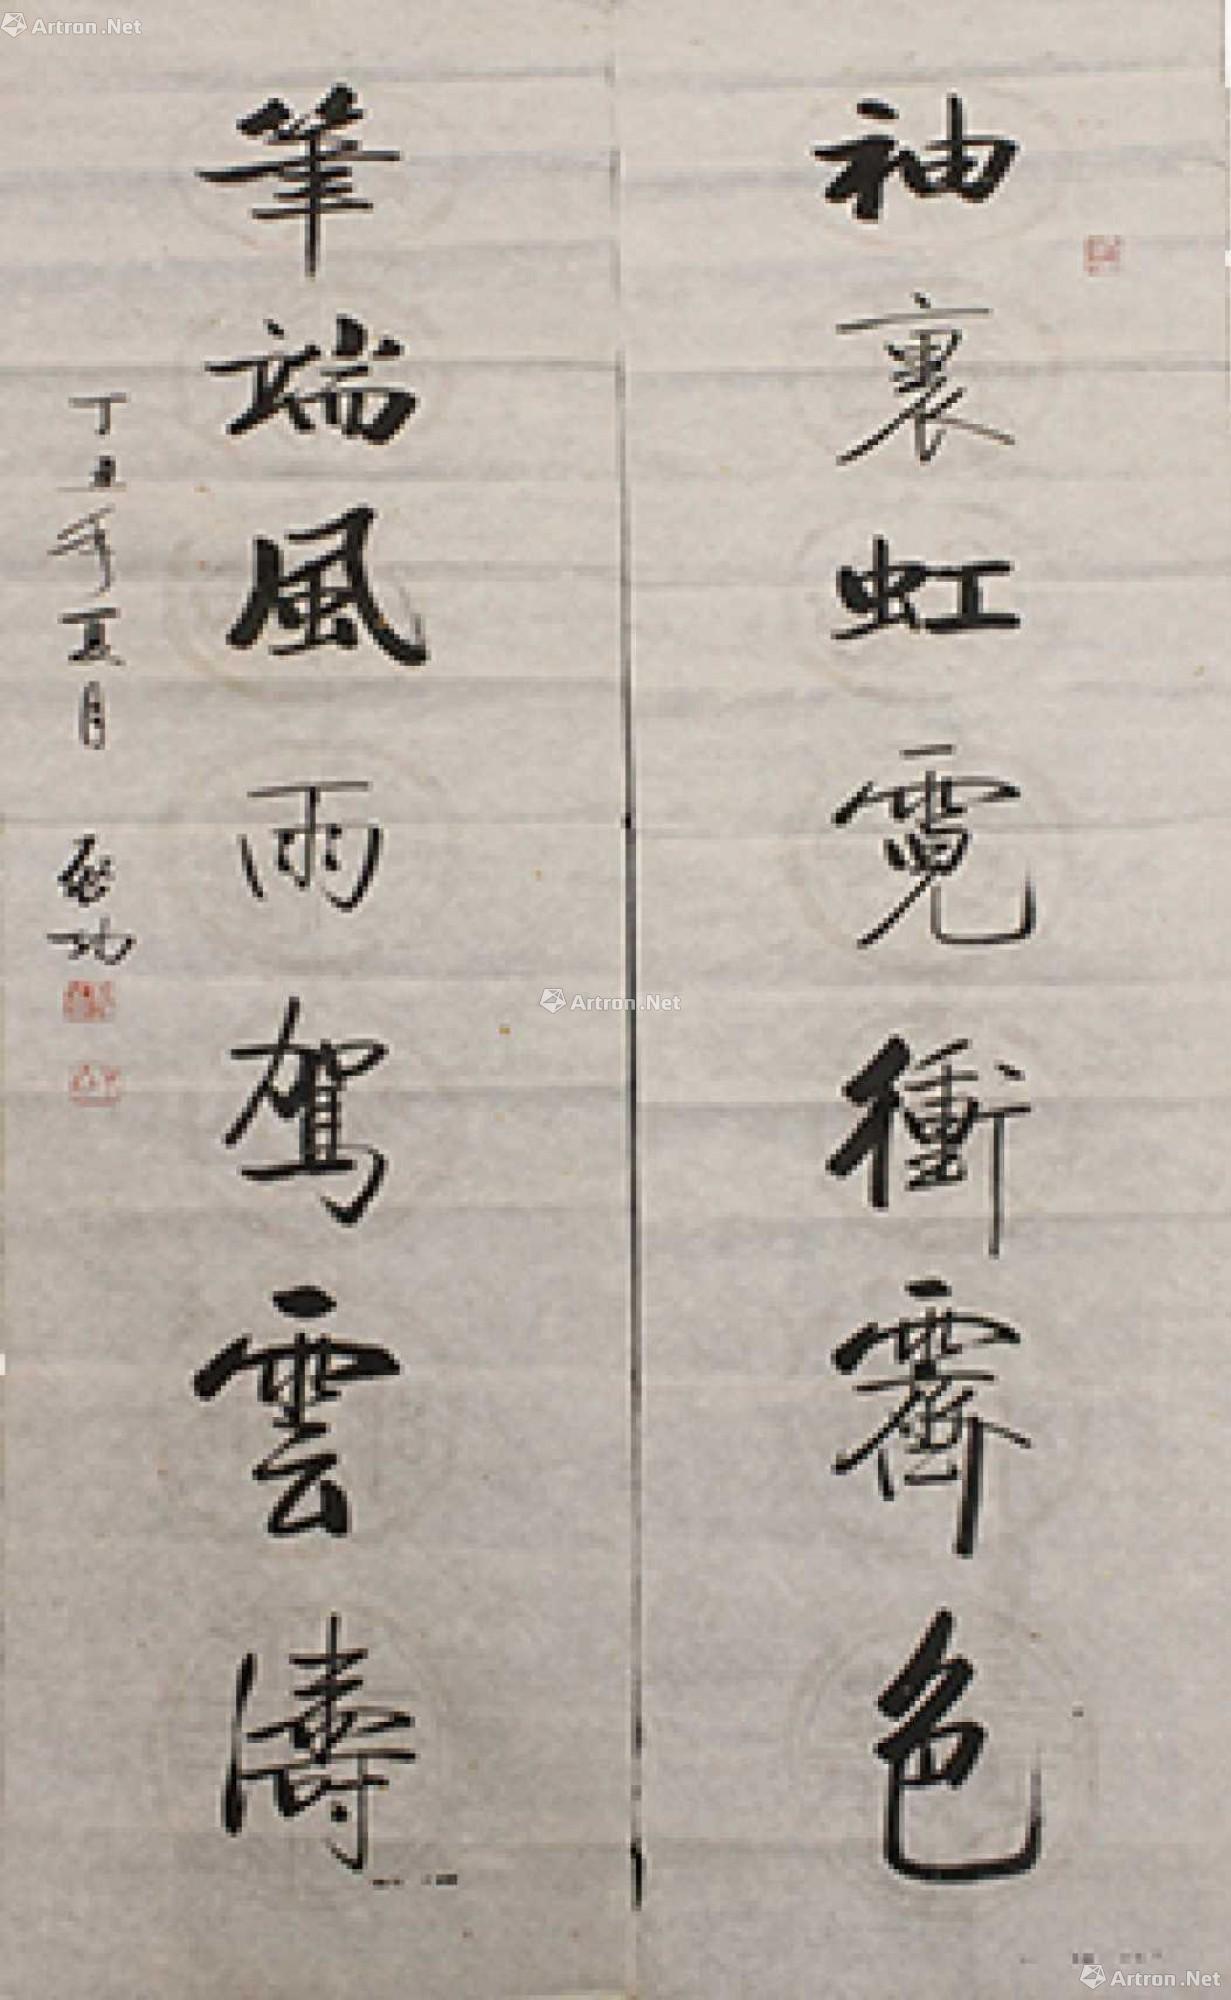 袖裏虹霓衝霽色
筆端風雨駕雲濤
丁丑年夏月 啟功
Artron.Net
Artron.Net
Artron.Net